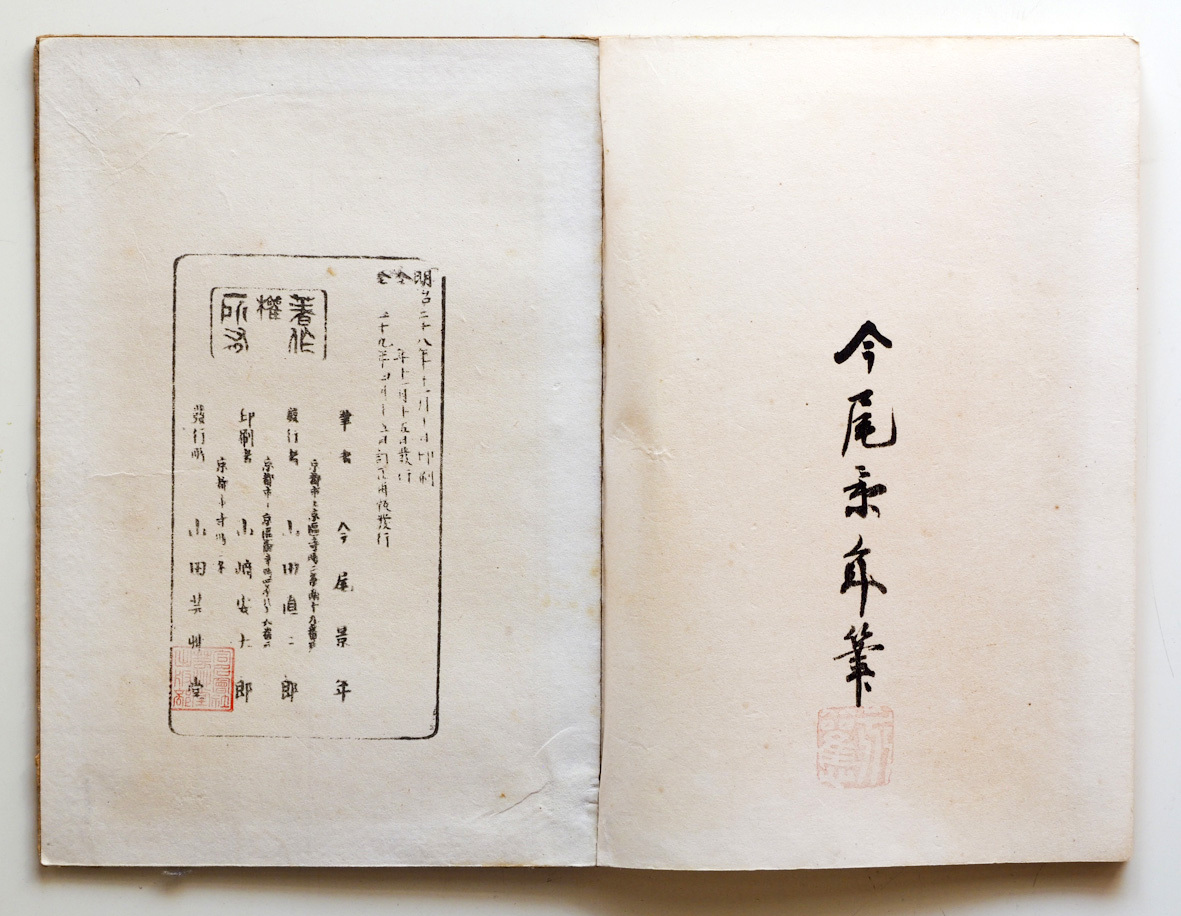 今尾景年筆
明治二十八年十一月十日印刷
仝 年十一月十五日發行
仝 二十九年四月十五日訂正再版發行
筆者 今尾景年
京都市上京區寺町二條南十九番戸
發行者 山田直三郎
京都市
印刷者 山﨑安太郎
京都市寺町二條
發行所 山田芸艸堂
著作
權
所有